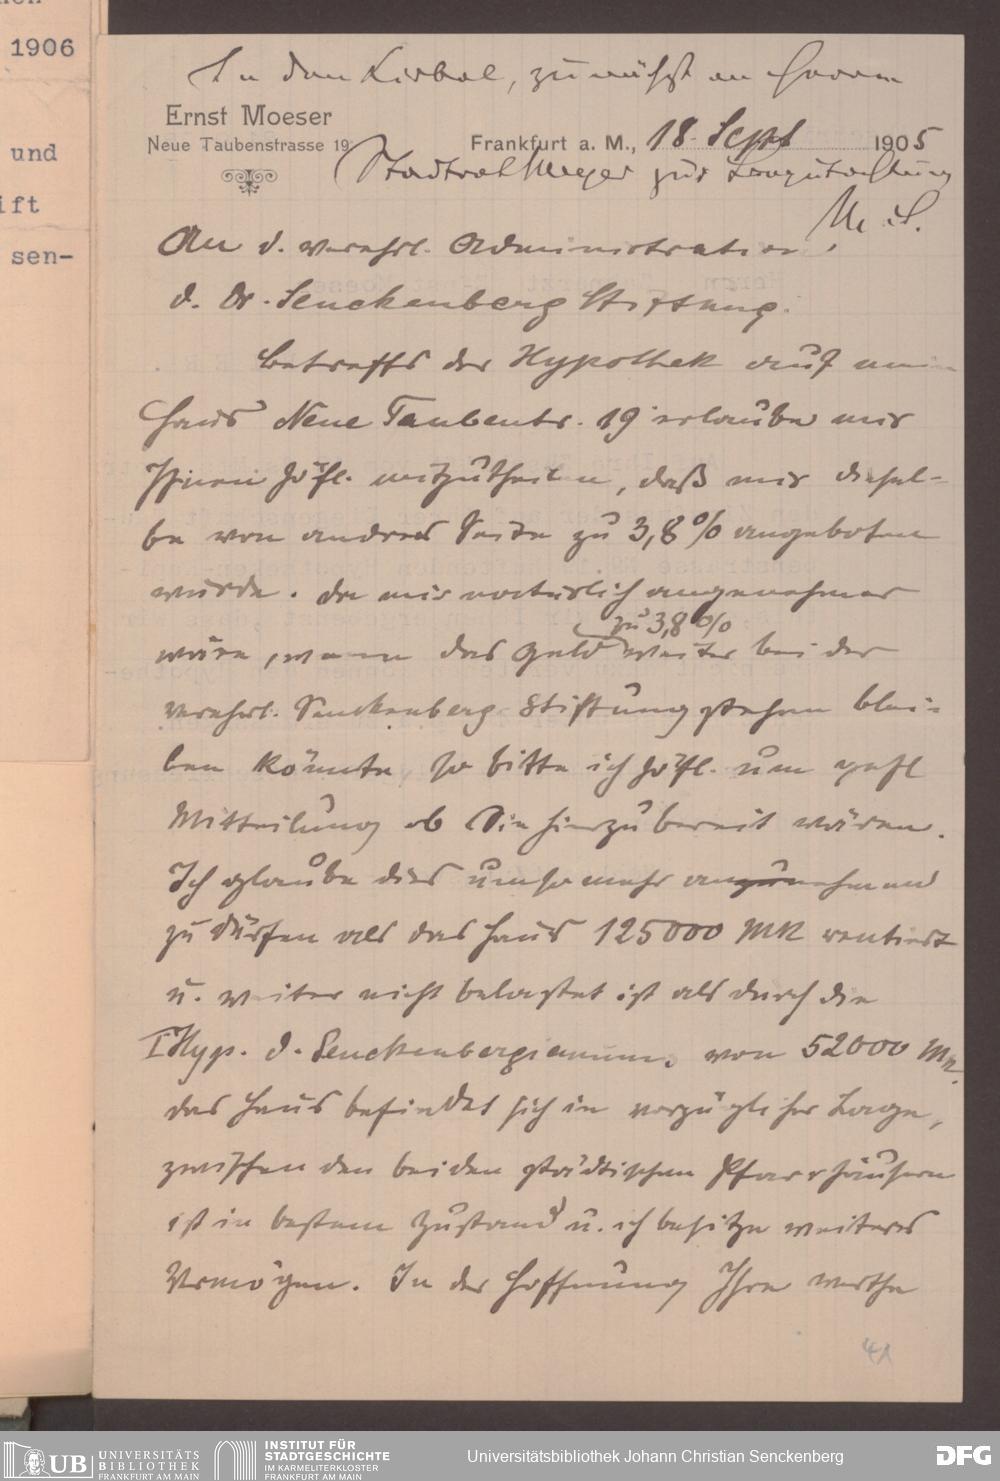 1906
und
ift
sen-
In den Zirkel, zunächst an Herrn
Ernst Moeser
Neue Taubenstrasse 19
Frankfurt a. M., 18. Sept 1905
Stadtrat Meyer zur Begutachtung
An d. verehrl. Administration
d. Dr. Senckenberg Stiftung.
Betreffs der Hypothek auf mein
Haus Neue Taubenstr. 19 erlaube mir
Ihnen höfl. mitzutheilen, daß mir diesel-
be von andrer Seite zu 3,8% angeboten
wurde. Da mir natürlich angenehmer
zu 3,8 %
wäre, wenn das Geld weiter bei der
verehrl. Senckenberg Stiftung stehen blei-
ben könnte so bitte ich höfl. um gefl
Mitteilung ob Sie hierzu bereit wären.
Ich glaube dies umso mehr annehmen
zu dürfen als das Haus 125000 Mk rentiert
u. weiter nicht belastet ist als durch die
I Hyp. d. Senckenbergianums von 52000 Mk.
das Haus befindet sich in vorzüglicher Lage,
zwischen den beiden städtischen Pfarrhäusern
ist in bestem Zustand u. ich besitze weiteres
Vermögen. In der Hoffnung Ihre werthe
41
UB UNIVERSITÄTS
BIBLIOTHEK
FRANKFURT AM MAIN
INSTITUT FÜR
STADTGESCHICHTE
IM KARMELITERKLOSTER
FRANKFURT AM MAIN
Universitätsbibliothek Johann Christian Senckenberg
DFG